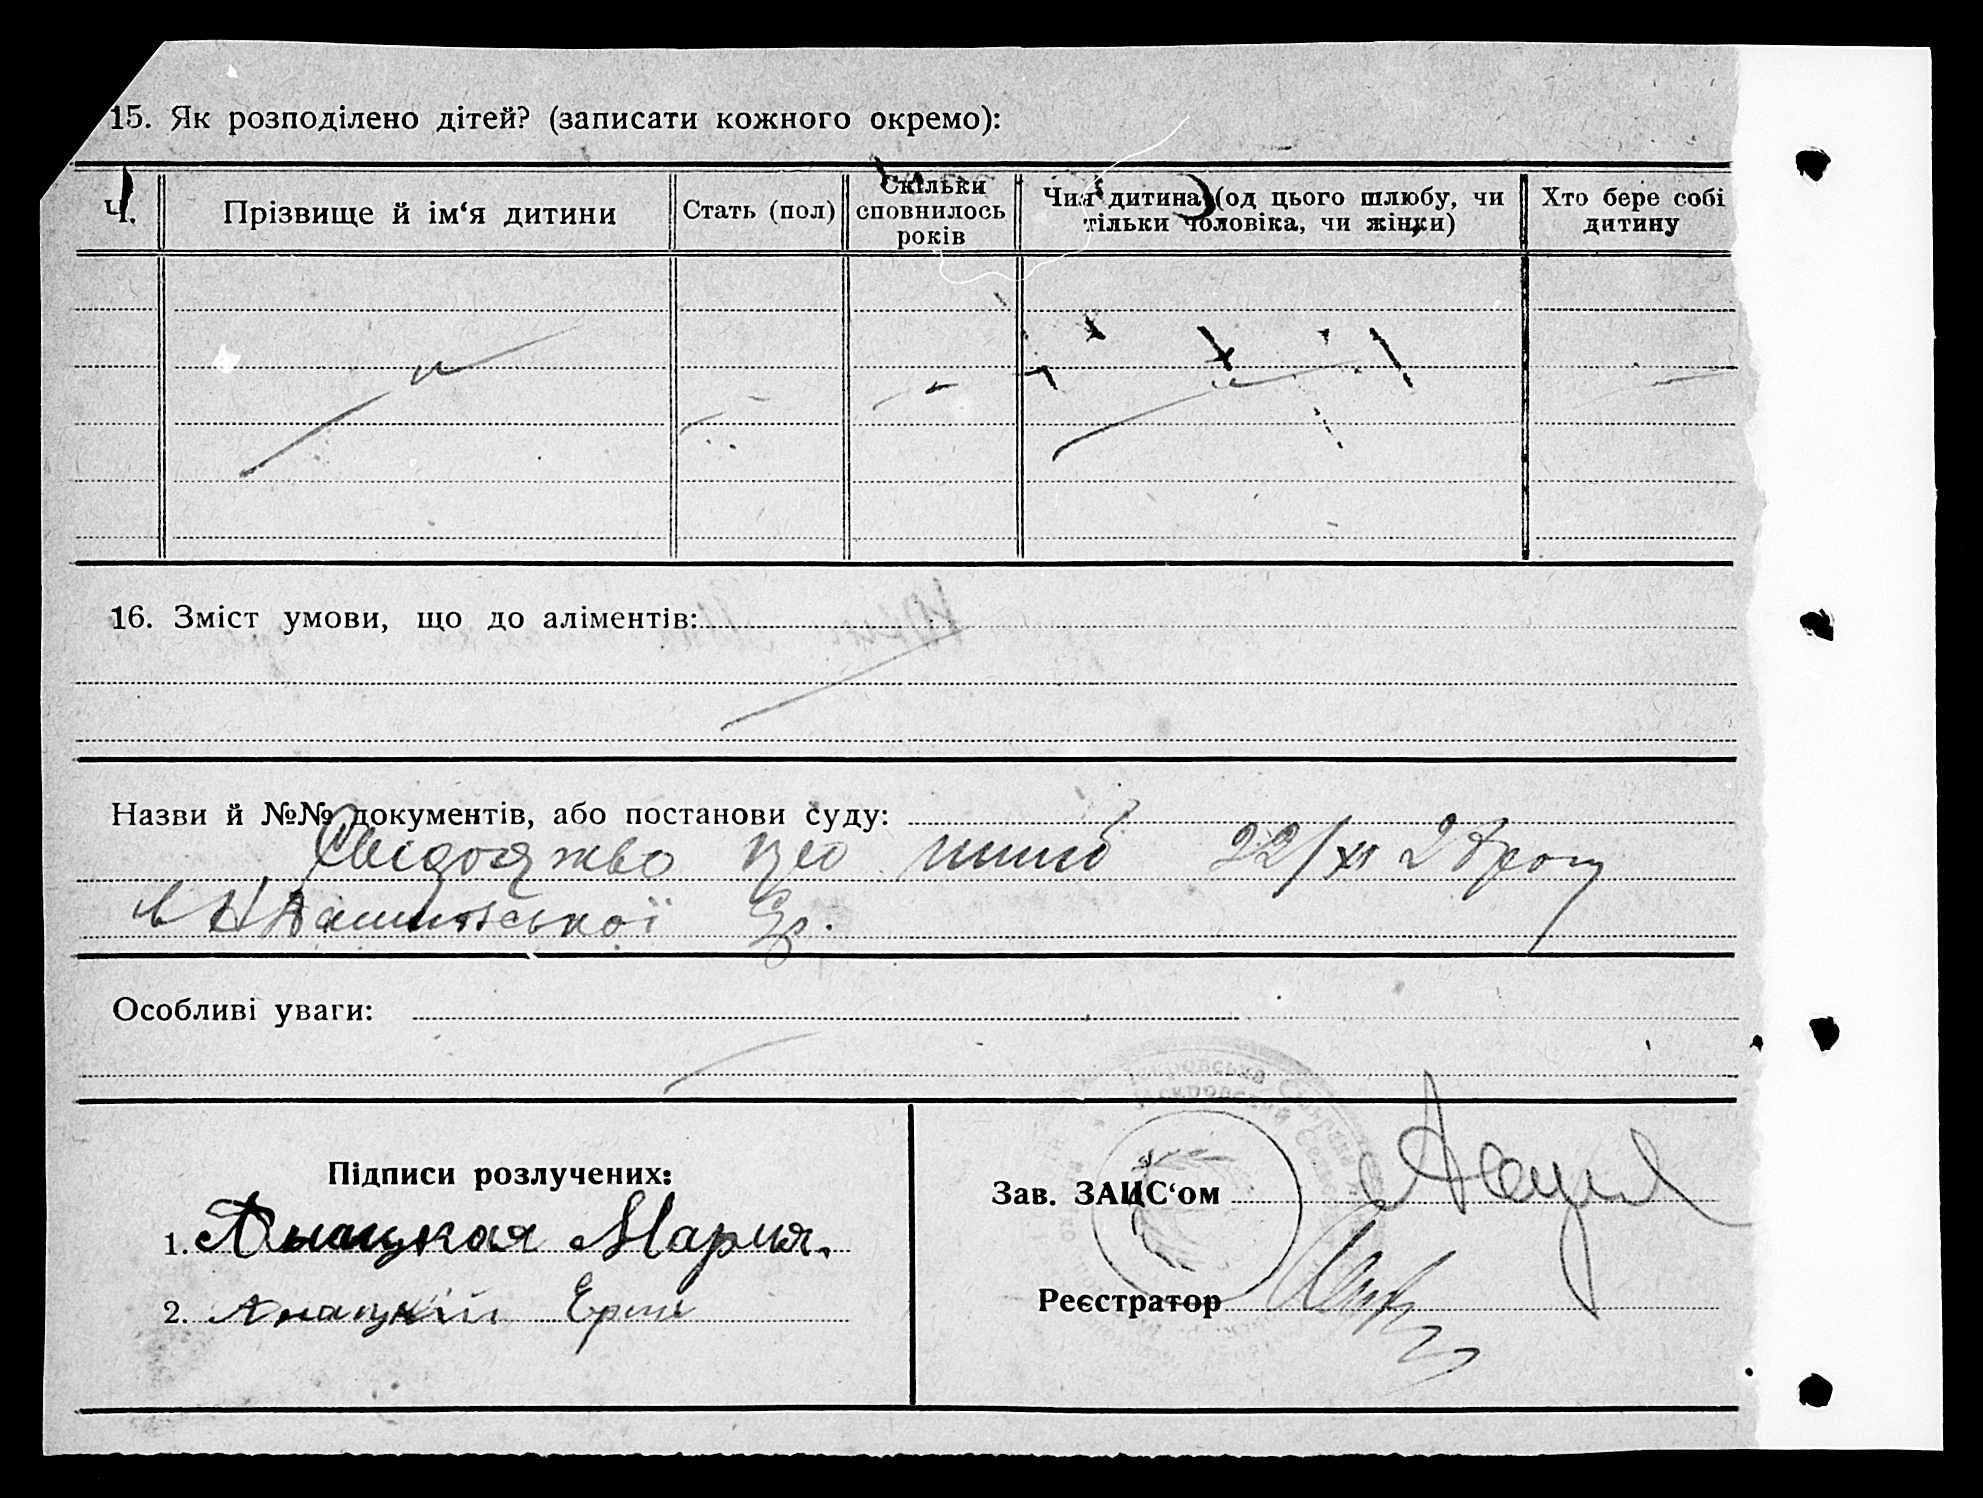 15. Як розподілено дітей? (записати кожного окремо):
Ч.
Прізвище й ім‘я дитини
Стать (пол)
Скільки
сповнилось
років
Чия дитина (од цього шлюбу, чи
тільки чоловіка, чи жінки)
Хто бере собі
дитину
16. Зміст умови, що до аліментів:
Назви й №№ документів, або постанови суду:
про шлюб 22/XI 28 року
в
Особливі уваги:
Підписи розлучених:
1. Анацкая Мария.
2. Анацкий
Зав. ЗАЦС‘ом
Реєстратор